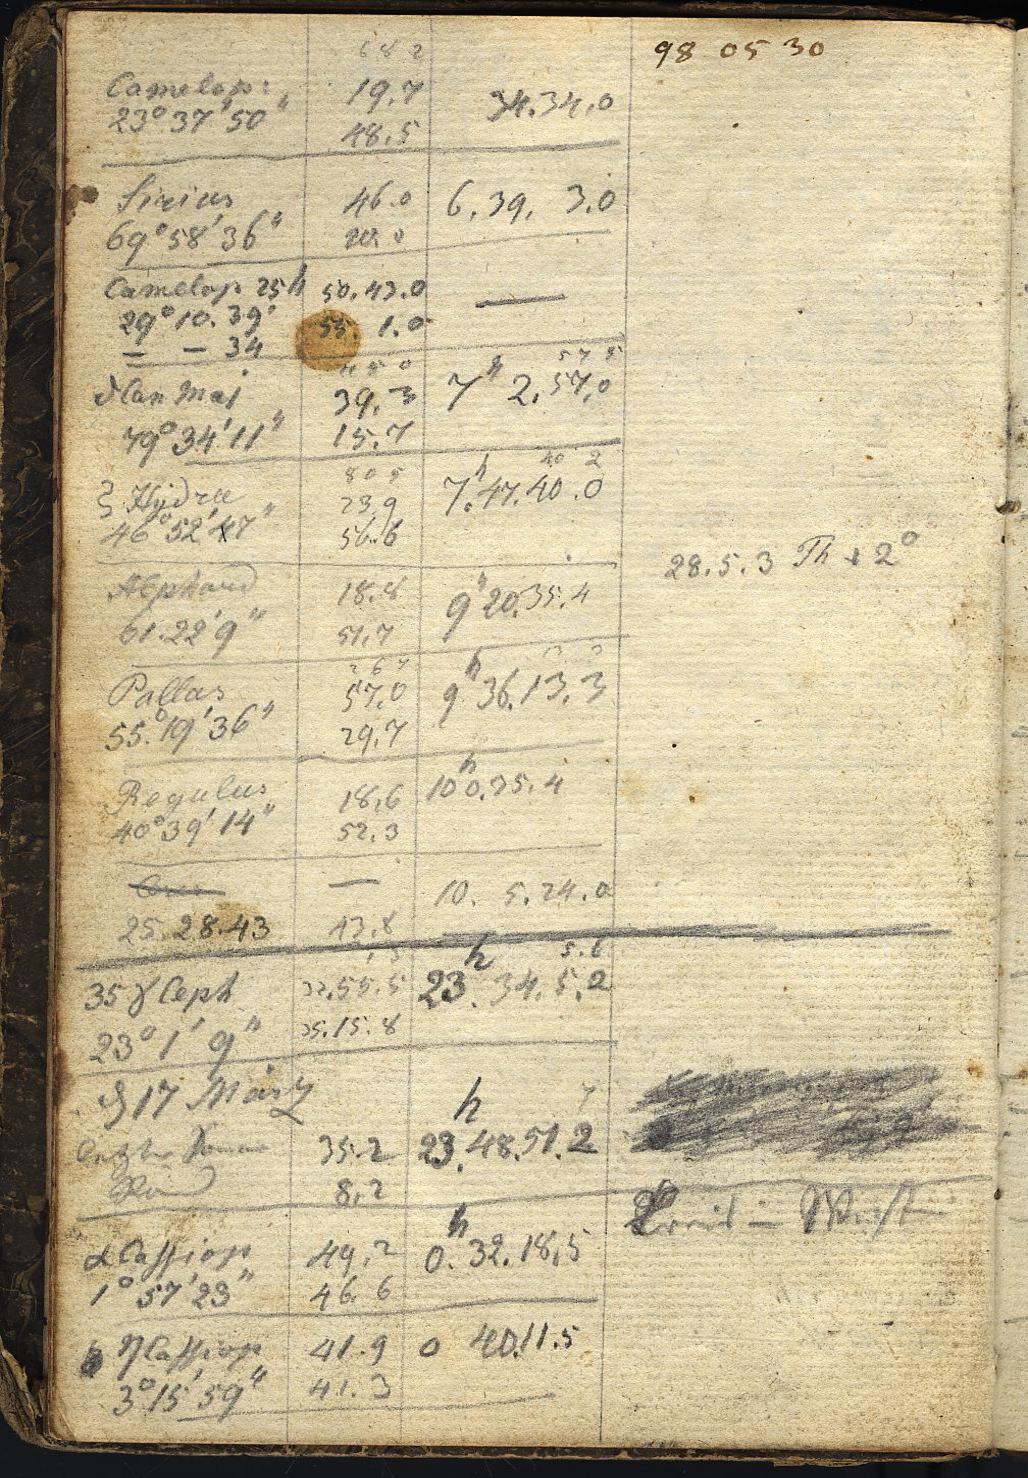 98 05 30
68 2
Camelop: 19,7 34.34.0
23° 37' 50"
48.5
Sirius 46.0 6. 39. 3.0
69° 58' 36"
Camelop 25 h 50.43.0 —
29° 10. 39' 55. 1.0
— — 34
45 0 57 5
δ Can Maj 39,3 7h 2,57,0
79° 34' 11" 15.7
80 5 40 2
ξ Hydrae 23,9 7.h 47. 40.0
46° 52' 47" 56.6
28.5.3 Th + 2°
Alphard 18.8 9h 20.35.4
61.22' 9" 51,7
26 7
Pallas 57,0 9h 36.13.3
55.° 19' 36" 29,7
Regulus 18,6 10h 0.25.4
40° 39' 14" 52.3
— 10. 5.24.0
25. 28.43 13.8
5.6
35 γ Ceph 22.55.5 23h. 34. 5.2
23° 1' 9" 35.15.8
♂ 17 März 7
35.2 23h. 48.51.2
8,2
α Cassiop 49,2 0.h 32.18,5
1° 57' 23" 46.6
η Cassiop 41.9 0 40.11.5
3° 15' 59" 41.3